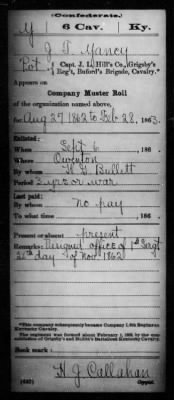 (Confederate.)
Y 6 Cav. Ky.
J. T. Yancy
Pvt., Capt. J. L. Hill's Co., Grigsby's
Reg't, Buford's Brigade, Cavalry.*
Appears on
Company Muster Roll
of the organization named above,
for Aug 27 1862 to Feb 28, 1863.
Enlisted:
When Sept 6, 186 .
Where Owenton
By whom
Period 3 yrs or war
Last paid:
By whom no pay
To what time , 186 .
Present or absent present
Remarks: Resigned office of 1st Sergt
26th day of Nov 1862
*This company subsequently became Company
Kentucky Cavalry.
The regiment was formed about February 1, 1863, by the
of Grigsby's and Bullitt's Battalions Kentucky Cavalry.
Book mark:
(642) H. J. Callahan
Copyist.